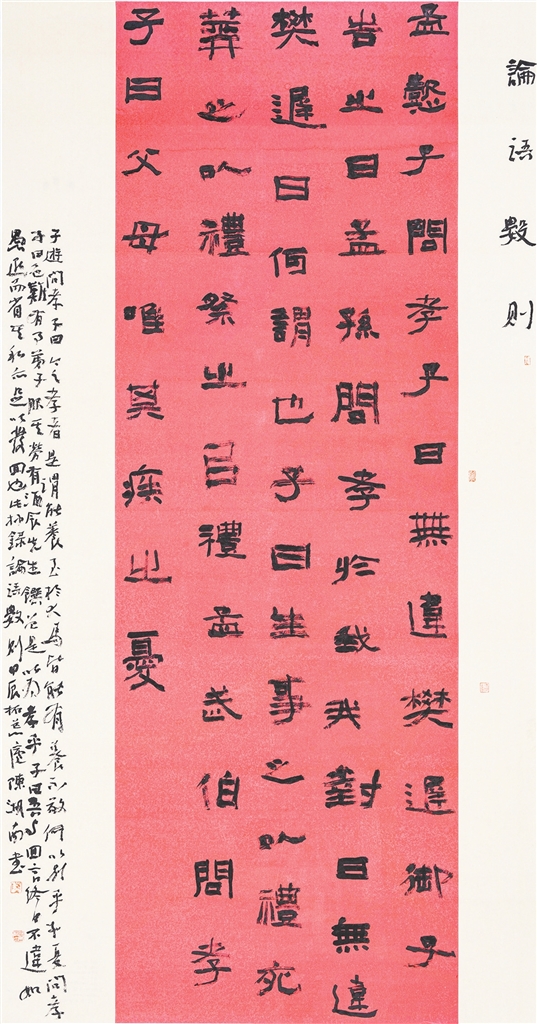 論語數則
孟懿子問孝子曰無違樊遲御子
告之曰孟孫問孝於我我對曰無違
樊遲曰何謂也子曰生事之以禮死
葬之以禮祭之以禮孟武伯問孝
子曰父母唯其疾之憂
子游問孝子曰今之孝者是謂能養至於犬馬皆能有養不敬何以別乎子夏問孝
子曰色難有事弟子服其勞有酒食先生饌曾是以為孝乎子曰吾與回言終日不違如
愚退而省其私亦足以發回也不愚錄論語數則甲辰 陳湖南書